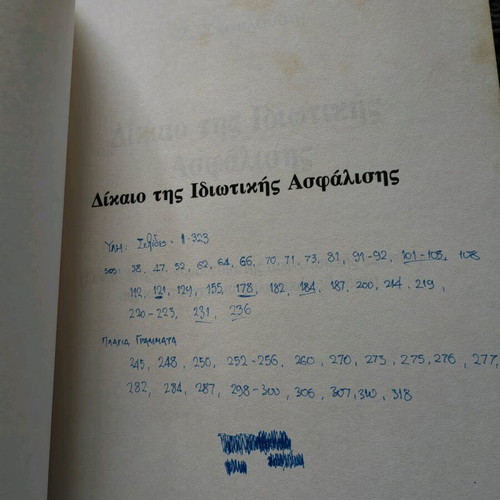 Δίκαιο της Ιδιωτικής Ασφάλισης
Ύλη: Σελίδες 1-323
sos: 38, 47, 52, 62, 64, 66, 70, 71, 73, 81, 91-92, 101-103, 108
112, 121, 129, 155, 178, 182, 184, 187, 200, 214, 219,
220-223, 231, 236
ΠΛΑΓΙΑ ΓΡΑΜΜΑΤΑ
245, 248, 250, 252-256, 260, 270, 273, 275, 276, 277,
282, 284, 287, 298-300, 306, 307, 310, 318